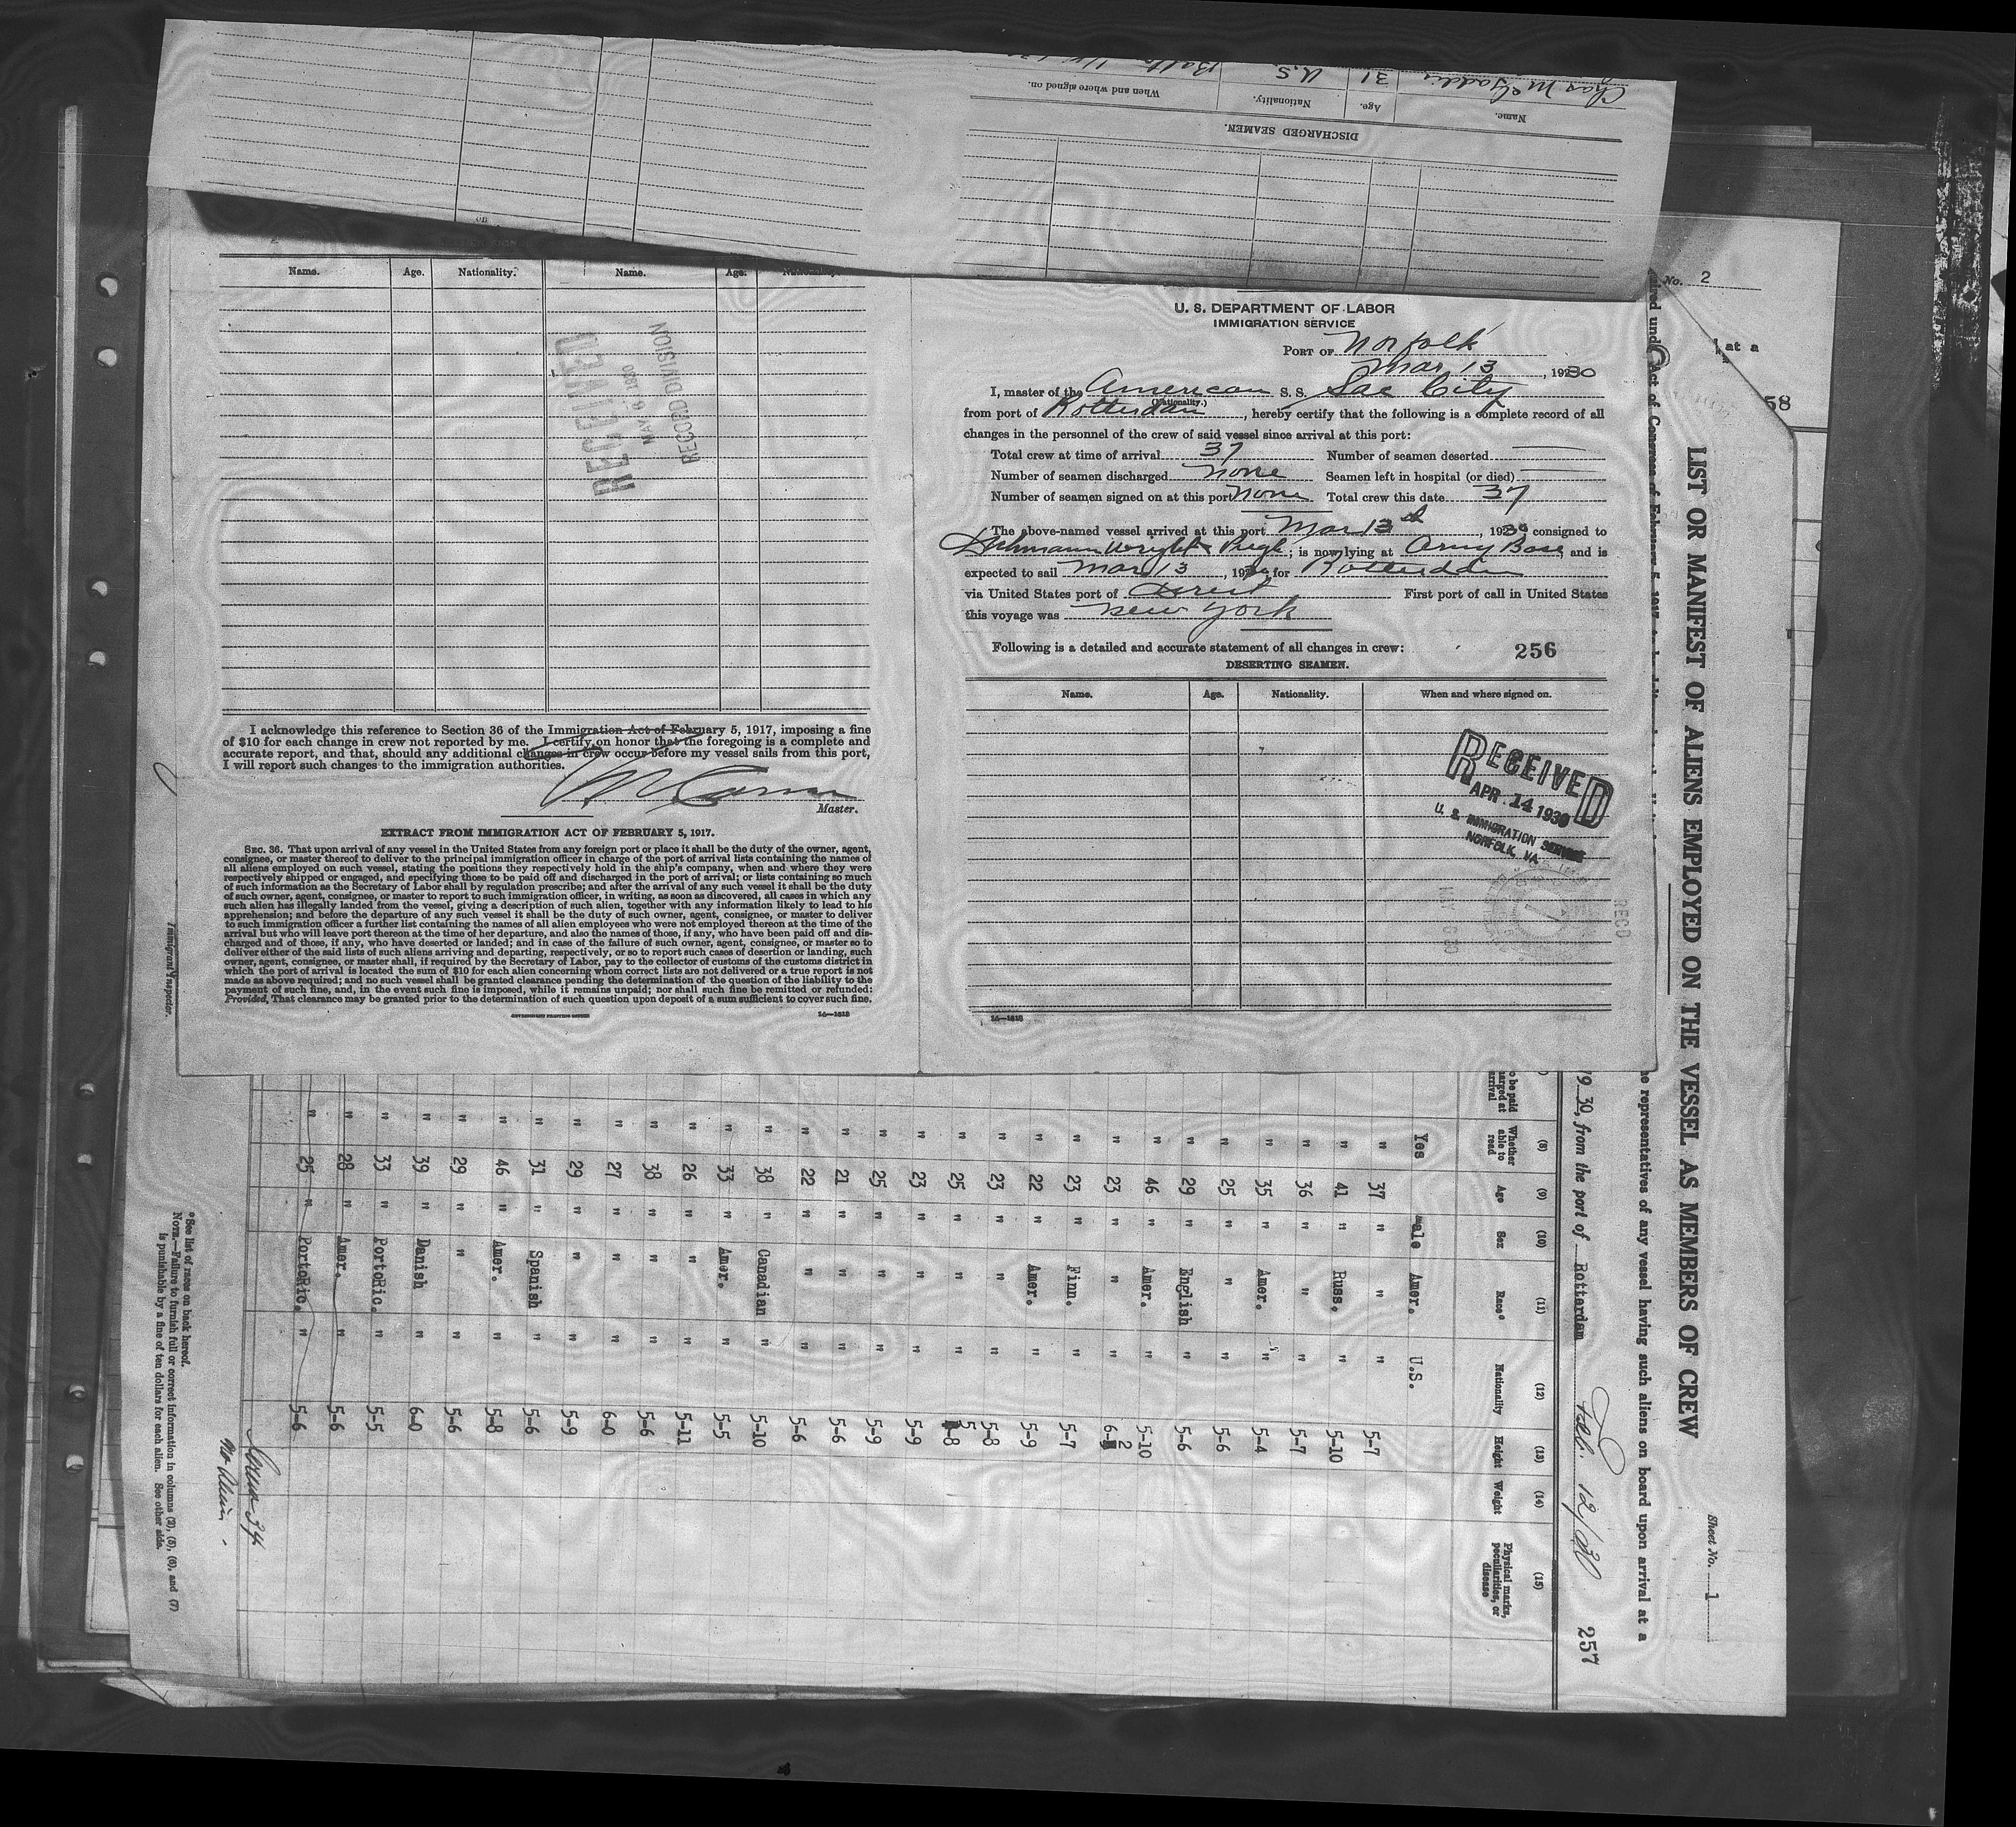 Chas McGaddis 31 U.S. Balto
Name. Age. Nationality. When and where signed on.
DISCHARGED SEAMEN.
Name. Age. Nationality. Name. Age.
RECEIVED
MAY 6 1930
RECORD DIVISION
I acknowledge this reference to Section 36 of the Immigration Act of February 5, 1917, imposing a fine
of $10 for each change in crew not reported by me. I certify on honor that the foregoing is a complete and
accurate report, and that, should any additional changes in crew occur before my vessel sails from this port,
I will report such changes to the immigration authorities.
Master.
EXTRACT FROM IMMIGRATION ACT OF FEBRUARY 5, 1917.
SEC. 36. That upon arrival of any vessel in the United States from any foreign port or place it shall be the duty of the owner, agent,
consignee, or master thereof to deliver to the principal immigration officer in charge of the port of arrival lists containing the names of
all aliens employed on such vessel, stating the positions they respectively hold in the ship's company, when and where they were
respectively shipped or engaged, and specifying those to be paid off and discharged in the port of arrival; or lists containing so much
of such information as the Secretary of Labor shall by regulation prescribe; and after the arrival of any such vessel it shall be the duty
of such owner, agent, consignee, or master to report to such immigration officer, in writing, as soon as discovered, all cases in which any
such alien has illegally landed from the vessel, giving a description of such alien, together with any information likely to lead to his
apprehension; and before the departure of any such vessel it shall be the duty of such owner, agent, consignee, or master to deliver
to such immigration officer a further list containing the names of all alien employees who were not employed thereon at the time of the
arrival but who will leave port thereon at the time of her departure, and also the names of those, if any, who have been paid off and dis-
charged and of those, if any, who have deserted or landed; and in case of the failure of such owner, agent, consignee, or master so to
deliver either of the said lists of such aliens arriving and departing, respectively, or so to report such cases of desertion or landing, such
owner, agent, consignee, or master shall, if required by the Secretary of Labor, pay to the collector of customs of the customs district in
which the port of arrival is located the sum of $10 for each alien concerning whom correct lists are not delivered or a true report is not
made as above required; and no such vessel shall be granted clearance pending the determination of the question of the liability to the
payment of such fine, and, in the event such fine is imposed, while it remains unpaid; nor shall such fine be remitted or refunded:
Provided, That clearance may be granted prior to the determination of such question upon deposit of a sum sufficient to cover such fine.
GOVERNMENT PRINTING OFFICE
14—1818
U. S. DEPARTMENT OF LABOR
IMMIGRATION SERVICE
PORT OF Norfolk
Mar 13, 1930
I, master of the American S. S. Sac City
(Nationality.)
from port of Rotterdam, hereby certify that the following is a complete record of all
changes in the personnel of the crew of said vessel since arrival at this port:
Total crew at time of arrival 37 Number of seamen deserted
Number of seamen discharged none Seamen left in hospital (or died)
Number of seamen signed on at this port none Total crew this date 37
The above-named vessel arrived at this port Mar 13th, 1930 consigned to
Wright & Pugh; is now lying at Army Base, and is
expected to sail Mar 13, 1930, for Rotterdam
via United States port of Direct First port of call in United States
this voyage was New York
Following is a detailed and accurate statement of all changes in crew: 256
DESERTING SEAMEN.
Name. Age. Nationality. When and where signed on.
RECEIVED
APR. 14 1930
U. S. IMMIGRATION SERVICE
NORFOLK, VA.
REC'D
14—1818
No. 2
at a
58
LIST OR MANIFEST OF ALIENS EMPLOYED ON THE VESSEL AS MEMBERS OF CREW
Sheet No. 1
Act of Congress of February 5, 1917
representatives of any vessel having such aliens on board upon arrival at a
19 30, from the port of Rotterdam Feb. 12/30 257
(8) (9) (10) (11) (12) (13) (14) (15)
Whether able to read Age Sex Race* Nationality Height Weight Physical marks, peculiarities, or disease
Yes male Amer. U.S.
" 37 " " " 5-7
" 41 " Russ. " 5-10
" 36 " " " 5-7
" 35 " Amer. " 5-4
" 25 " " " 5-6
" 29 " English " 5-6
" 46 " Amer. " 5-10
" 23 " " " 6-2
" 23 " Finn. " 5-7
" 22 " Amer. " 5-9
" 23 " " " 5-8
" 25 " " " 5-8
" 23 " " " 5-9
" 25 " " " 5-9
" 21 " " " 5-6
" 22 " " " 5-6
" 38 " Canadian " 5-10
" 33 " Amer. " 5-5
" 26 " " " 5-11
" 38 " " " 5-6
" 27 " " " 6-0
" 29 " " " 5-9
" 31 " Spanish " 5-6
" 46 " Amer. " 5-8
" 29 " " " 5-6
" 39 " Danish " 6-0
" 33 " PortoRic. " 5-5
" 28 " Amer. " 5-6
" 25 " PortoRic. " 5-6
*See list of races on back hereof.
NOTE.—Failure to furnish full or correct information in columns (2), (5), (6), and (7)
is punishable by a fine of ten dollars for each alien. See other side.
Immigrant Inspector.